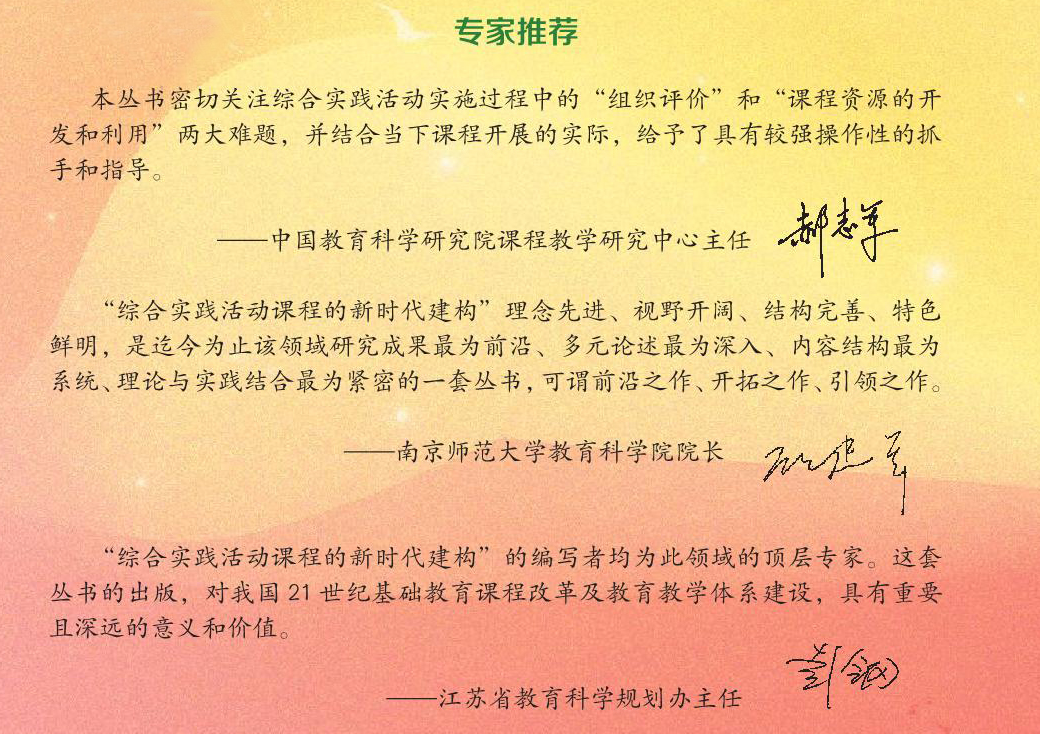 专家推荐
本丛书密切关注综合实践活动实施过程中的“组织评价”和“课程资源的开
发和利用”两大难题，并结合当下课程开展的实际，给予了具有较强操作性的抓
手和指导。
——中国教育科学研究院课程教学研究中心主任 郝志军
“综合实践活动课程的新时代建构”理念先进、视野开阔、结构完善、特色
鲜明，是迄今为止该领域研究成果最为前沿、多元论述最为深入、内容结构最为
系统、理论与实践结合最为紧密的一套丛书，可谓前沿之作、开拓之作、引领之作。
——南京师范大学教育科学院院长
“综合实践活动课程的新时代建构”的编写者均为此领域的顶层专家。这套
丛书的出版，对我国21世纪基础教育课程改革及教育教学体系建设，具有重要
且深远的意义和价值。
——江苏省教育科学规划办主任 彭钢